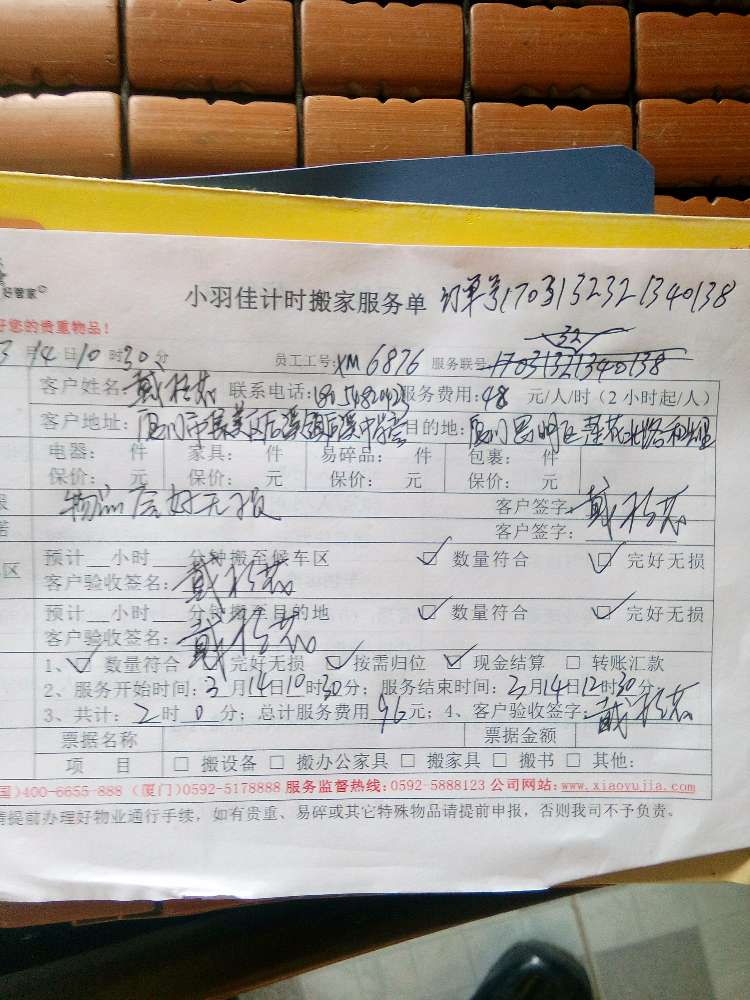 好管家
小羽佳计时搬家服务单 订单号1703132321340138
好您的贵重物品!
32
3月14日10时30分 员工工号:XM6876 服务联号:17031321340138
客户姓名:戴 联系电话: 服务费用:48元/人/时(2小时起/人)
客户地址:厦门市集美区后溪 目的地:厦门思明区莲花北路
电器: 件 家具: 件 易碎品: 件 包裹: 件
保价: 元 保价: 元 保价: 元 保价: 元
物品完好无损 客户签字:戴
客户签字:
区 预计__小时__分钟搬至候车区 数量符合 完好无损
客户验收签名:戴
预计__小时__分钟搬至目的地 数量符合 完好无损
客户验收签名:戴
1、数量符合 完好无损 按需归位 现金结算 转账汇款
2、服务开始时间:3月14日10时30分;服务结束时间:3月14日12时30分
3、共计:2时0分;总计服务费用96元;4、客户验收签字:戴
票据名称 票据金额
项 目 搬设备 搬办公家具 搬家具 搬书 其他:
国)400-6655-888 (厦门)0592-5178888 服务监督热线:0592-5888123 公司网站:www.xiaoyujia.com
请提前办理好物业通行手续,如有贵重、易碎或其它特殊物品请提前申报,否则我司不予负责。